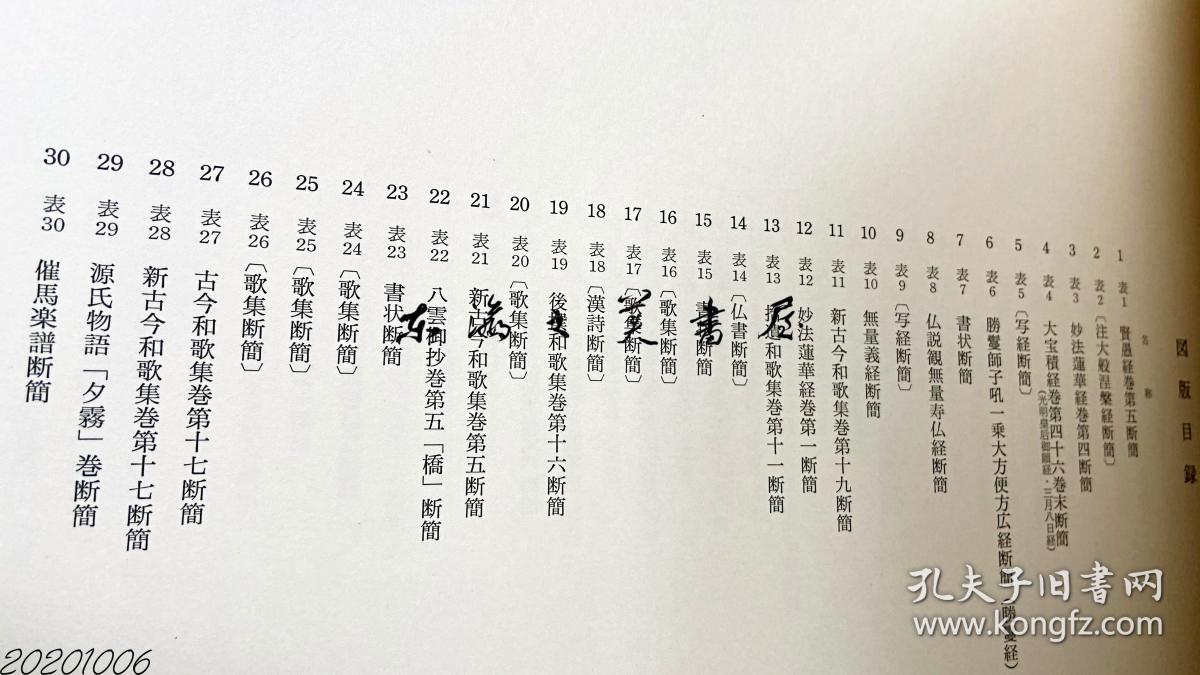 図版目録
名称
1 表1 賢愚経巻第五断簡
2 表2 〔注大般涅槃経断簡〕
3 表3 妙法蓮華経巻第四断簡
4 表4 大宝積経巻第四十六巻末断簡
(光明皇后御願経・三月八日経)
5 表5 〔写経断簡〕
6 表6 勝鬘師子吼一乗大方便方広経断簡(勝鬘経)
7 表7 書状断簡
8 表8 仏説観無量寿仏経断簡
9 表9 〔写経断簡〕
10 表10 無量義経断簡
11 表11 新古今和歌集巻第十九断簡
12 表12 妙法蓮華経巻第一断簡
13 表13 拾遺和歌集巻第十一断簡
14 表14 〔仏書断簡〕
15 表15 書状断簡
16 表16 〔歌集断簡〕
17 表17 〔歌集断簡〕
18 表18 〔漢詩断簡〕
19 表19 後撰和歌集巻第十六断簡
20 表20 〔歌集断簡〕
21 表21 新古今和歌集巻第五断簡
22 表22 八雲御抄巻第五「橋」断簡
23 表23 書状断簡
24 表24 〔歌集断簡〕
25 表25 〔歌集断簡〕
26 表26 〔歌集断簡〕
27 表27 古今和歌集巻第十七断簡
28 表28 新古今和歌集巻第十七断簡
29 表29 源氏物語「夕霧」巻断簡
30 表30 催馬楽譜断簡
东瀛文美書屋
孔夫子旧书网
www.kongfz.com
20201006